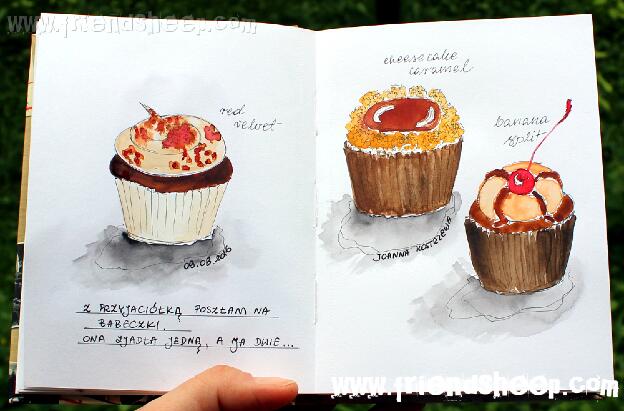 www.friendsheep.com
red
velvet
cheesecake
caramel
banana
split
09.03.2016
JOANNA KOSTRZEWA
Z PRZYJACIÓŁKĄ POSZŁAM NA
BABECZKI.
ONA ZJADŁA JEDNĄ, A JA DWIE...
www.friendsheep.com